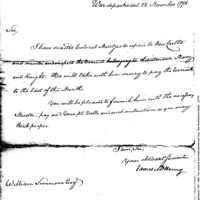 War department 22 November 1798.
Sir,
I have directed Colonel Stevens to repair to New
and the Recruits belonging to Lieutenants
and Knight. He will take with him money to pay the Recruits
to the last of this Month.
You will be pleased to furnish him with the necessary
Muster, pay and receipt Rolls and such instructions as you may
think proper.
I am, Sir,
your obedient Servant
James McHenry
William Simmons Esqr